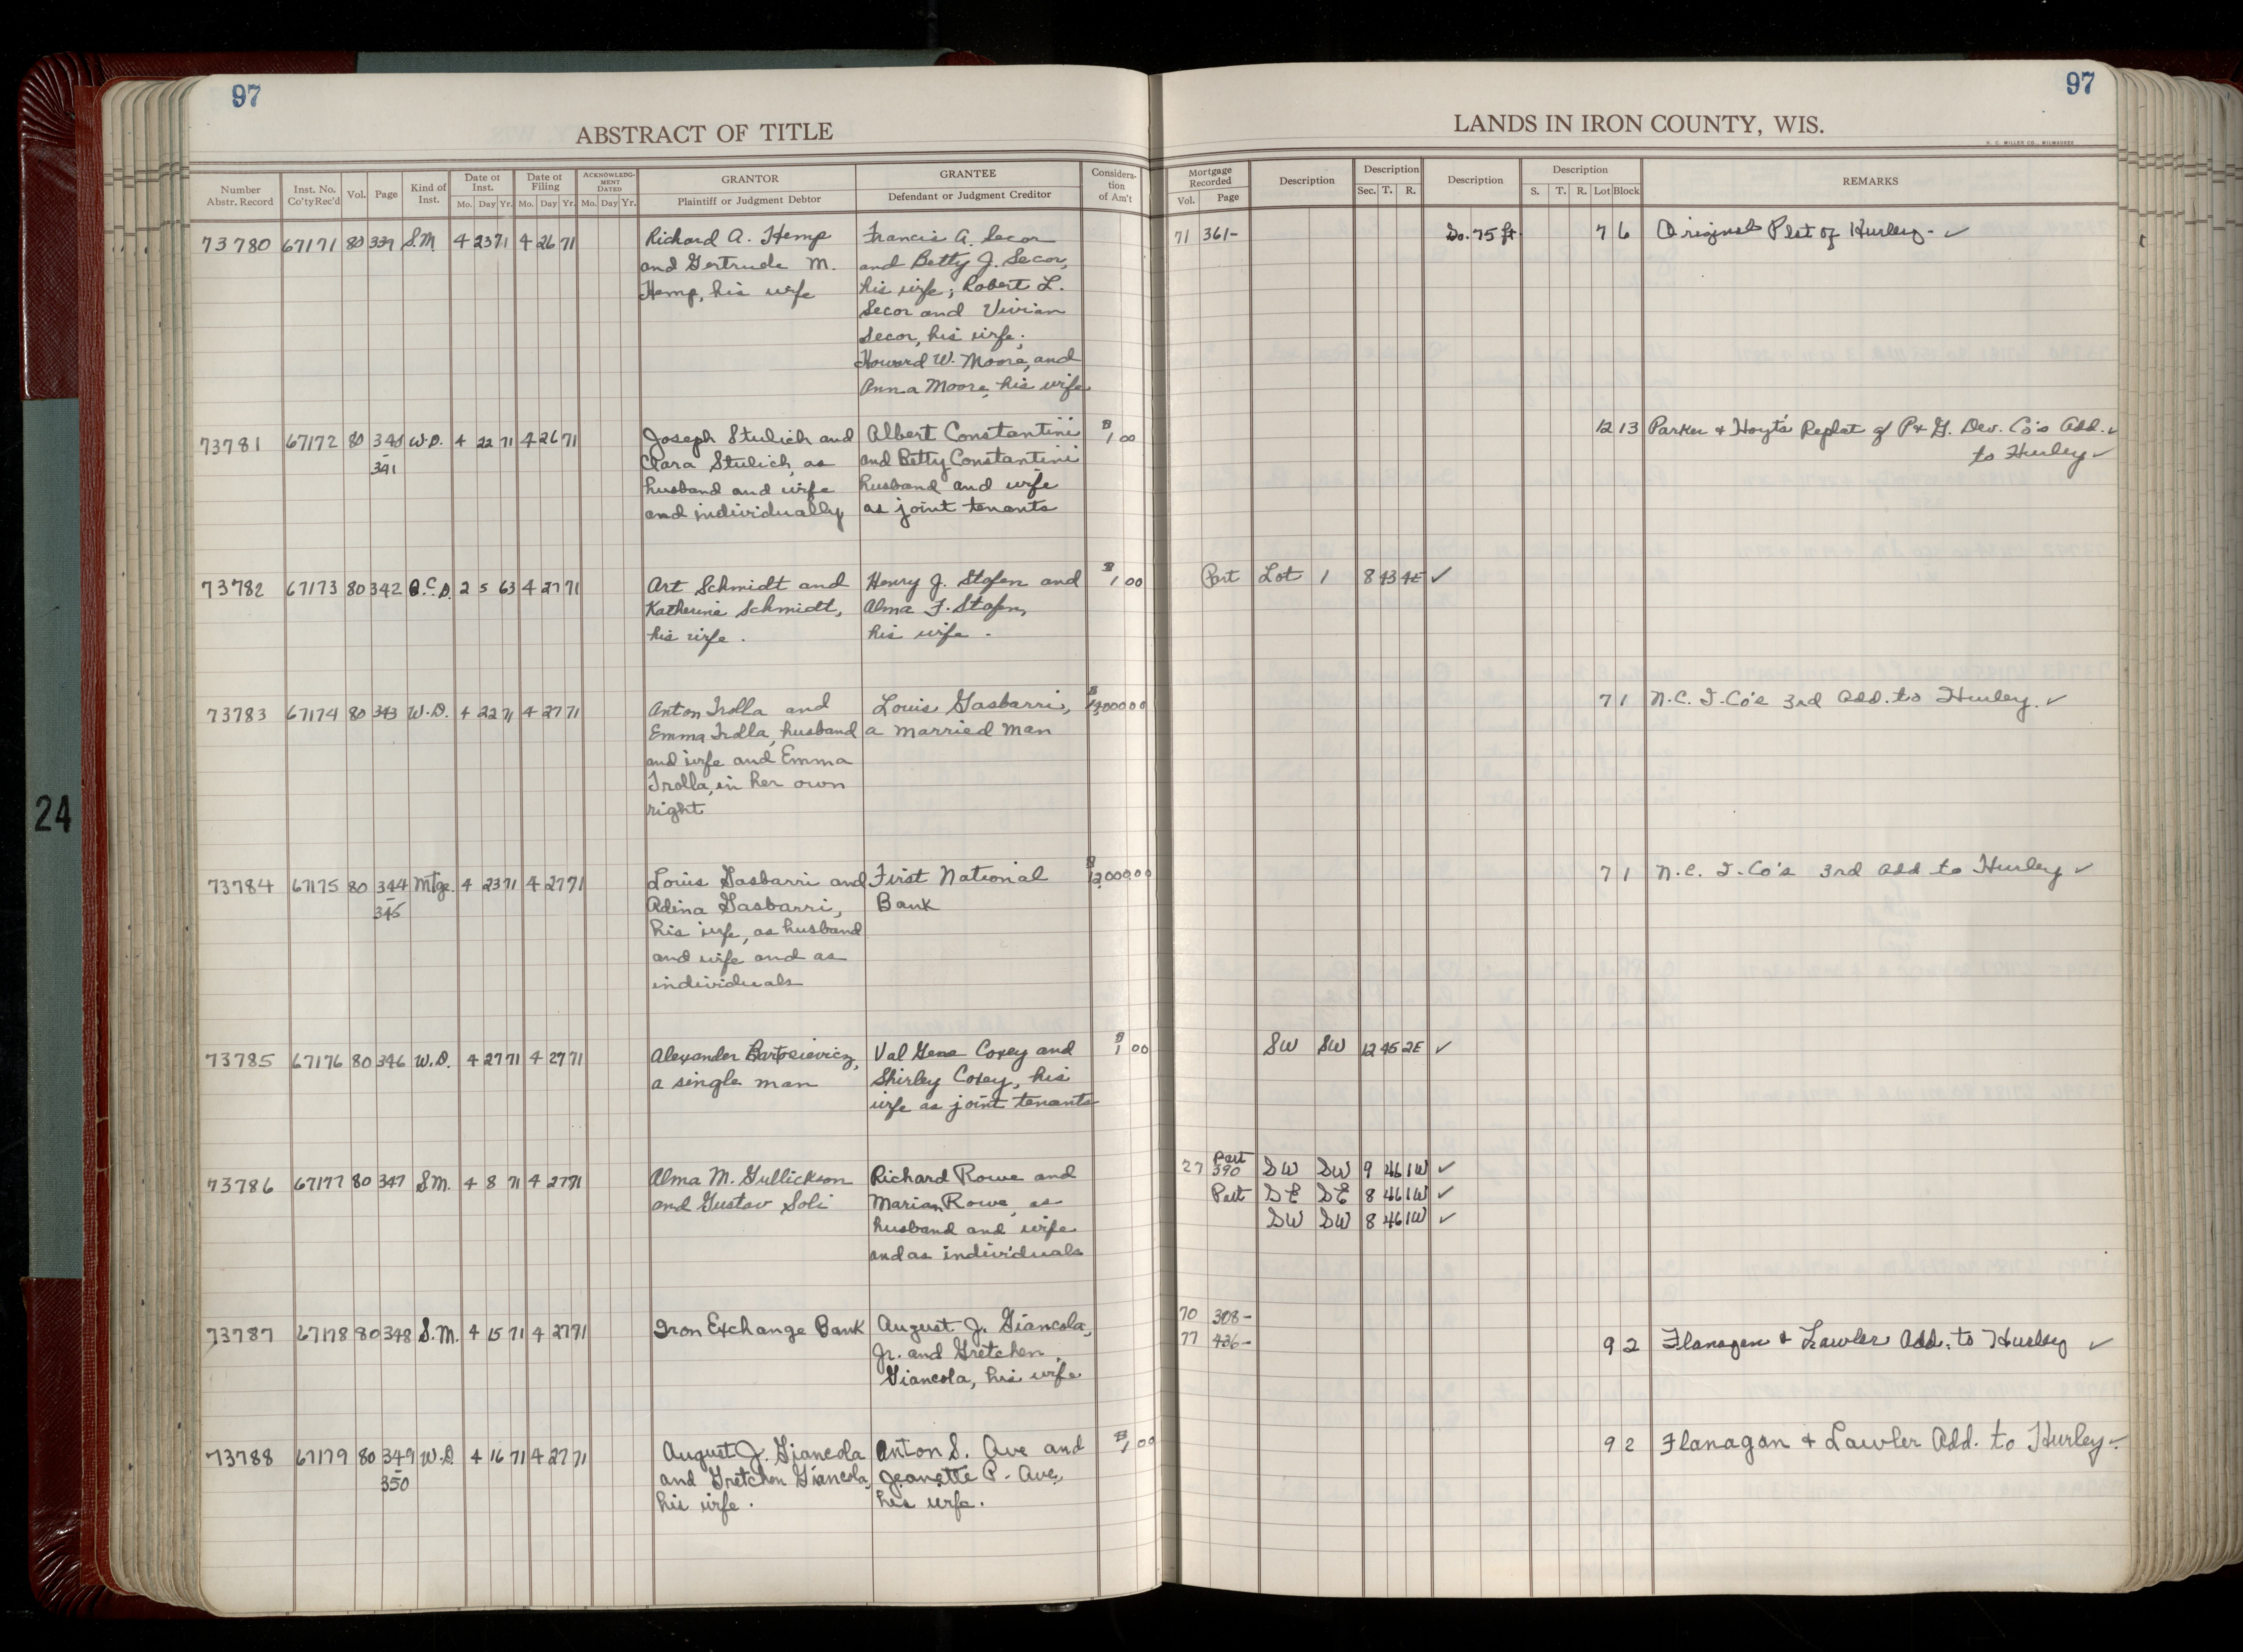 97
ABSTRACT OF TITLE
Number Abstr. Record | Inst. No. Co'ty Rec'd | Vol. | Page | Kind of Inst. | Date of Inst. Mo. Day Yr. | Date of Filing Mo. Day Yr. | ACKNOWLEDGMENT DATED Mo. Day Yr. | GRANTOR Plaintiff or Judgment Debtor | GRANTEE Defendant or Judgment Creditor | Consideration of Am't
73780 67171 80 339 S.M 4 23 71 4 26 71 Richard A. Hemp Francis A. Secor
and Gertrude M. and Betty J. Secor,
Hemp, his wife his wife; Robert L.
Secor and Vivian
Secor, his wife;
Howard W. Moore, and
Anna Moore, his wife
73781 67172 80 340 W.D. 4 22 71 4 26 71 Joseph Stulich and Albert Constantini $1 00
- 341 Clara Stulich, as and Betty Constantini
husband and wife husband and wife
and individually as joint tenants
73782 67173 80 342 Q.C.D. 2 5 63 4 27 71 Art Schmidt and Henry J. Stofen and $1 00
Katherine Schmidt, Alma F. Stofen,
his wife. his wife.
73783 67174 80 343 W.D. 4 22 71 4 27 71 Anton Trolla and Louis Gasbarri,
Emma Trolla, husband a married man
and wife and Emma
Trolla, in her own
right
73784 67175 80 344 Mtge. 4 23 71 4 27 71 Louis Gasbarri and First National $12,000 00
- 345 Adina Gasbarri, Bank
his wife, as husband
and wife and as
individuals
73785 67176 80 346 W.D. 4 27 71 4 27 71 Alexander Bartosievicz, Val Gene Coxey and $1 00
a single man Shirley Coxey, his
wife as joint tenants
73786 67177 80 347 S.M. 4 8 71 4 27 71 Alma M. Gullickson Richard Rowe and
and Gustav Soli Marian Rowe, as
husband and wife
and as individuals
73787 67178 80 348 S.M. 4 15 71 4 27 71 Iron Exchange Bank August J. Giancola,
Jr. and Gretchen
Giancola, his wife
73788 67179 80 349 W.D 4 16 71 4 27 71 August J. Giancola Anton S. Ave and $1 00
- 350 and Gretchen Giancola, Jeanette P. Ave,
his wife. his wife.
24
97
LANDS IN IRON COUNTY, WIS.
H. C. MILLER CO., MILWAUKEE
Mortgage Recorded Vol. Page | Description | Description Sec. T. R. | Description | Description S. T. R. Lot Block | REMARKS
71 361- So. 75 ft. 7 6 Original Plat of Hurley- ✓
12 13 Parker & Hoyt's Replat of P & G. Dev. Co's Add. ✓
to Hurley ✓
Part Lot 1 8 43 4E ✓
7 1 N.C. I. Co's 3rd Add. to Hurley. ✓
7 1 N.C. I. Co's 3rd Add to Hurley ✓
SW SW 12 45 2E ✓
27 Part 390 SW SW 9 46 1W ✓
Part SE SE 8 46 1W ✓
SW SW 8 46 1W ✓
70 308-
77 426- 9 2 Flanagan & Lawler Add. to Hurley ✓
9 2 Flanagan & Lawler Add. to Hurley ✓